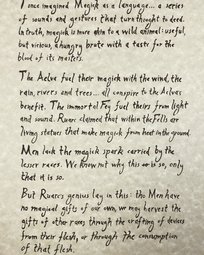 I once imagined Magick as a language... a series
of sounds and gestures that turn thought to deed.
In truth, magick is more akin to a wild animal: useful,
but vicious, a hungry brute with a taste for the
blood of its masters.
The Aelva fuel their magick with the wind, the
rain, rivers and trees... all conspire to the Aelvas
benefit. The immortal Fey fuel theirs from light
and sound. Ruarc claimed that within the Fells are
living statues that make magick from heat in the ground.
Men lack the magick spark carried by the
lesser races. We know not why this is so, only
that it is so.
But Ruarc's genius lay in this: tho Men have
no magical gifts of our own, we may harvest the
gifts of other races through the crafting of devices
from their flesh, or through the consumption
of that flesh.